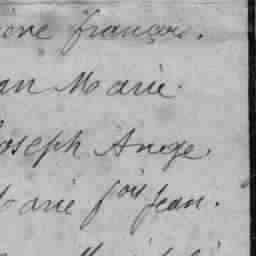 françois.
an Marie
Joseph Ange.
Marie fois Jean.